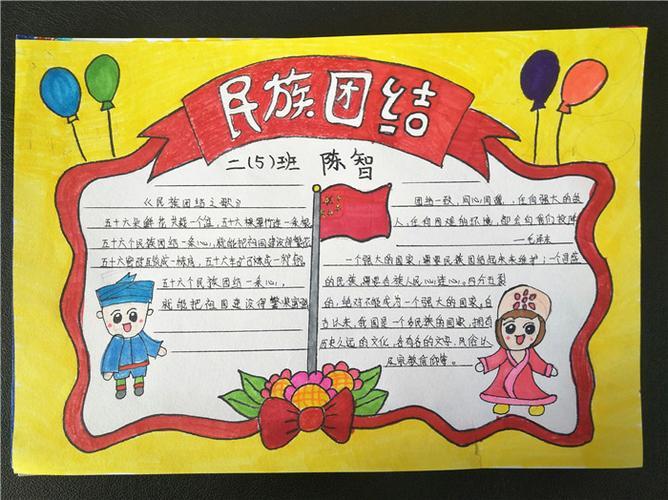 民族团结
二(5)班 陈智
《民族团结之歌》
五十六朵鲜花
五十六个民族团结一条心,就能把祖国建设得繁花
五十六个民族团结一条心,
就能把祖国建设得繁荣富强
团结一致,同心同德,任何强大的敌
人,任何困难的环境,都会向我们投降
—毛泽东
一个强大的国家,需要民族团结起来来维护;一个
的民族,需要各族人民心连心。
的,绝对不能成为一个强大的国家,自
古以来,我国是一个多民族的国家,拥有
历史久远的文化,各有各的文字、风俗以
及宗教信仰等。